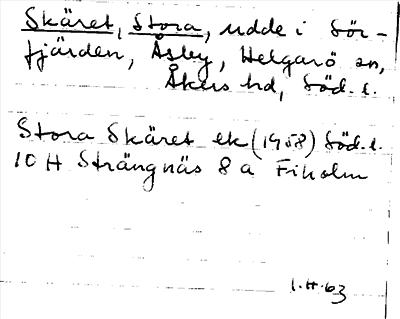 Skäret, Stora, udde i Sör-
fjärden, Åsby, Helgarö sn,
Åkers hd, Söd. l.
Stora Skäret ek (1958) Söd. l.
10 H Strängnäs 8 a Fiholm
1.H.63